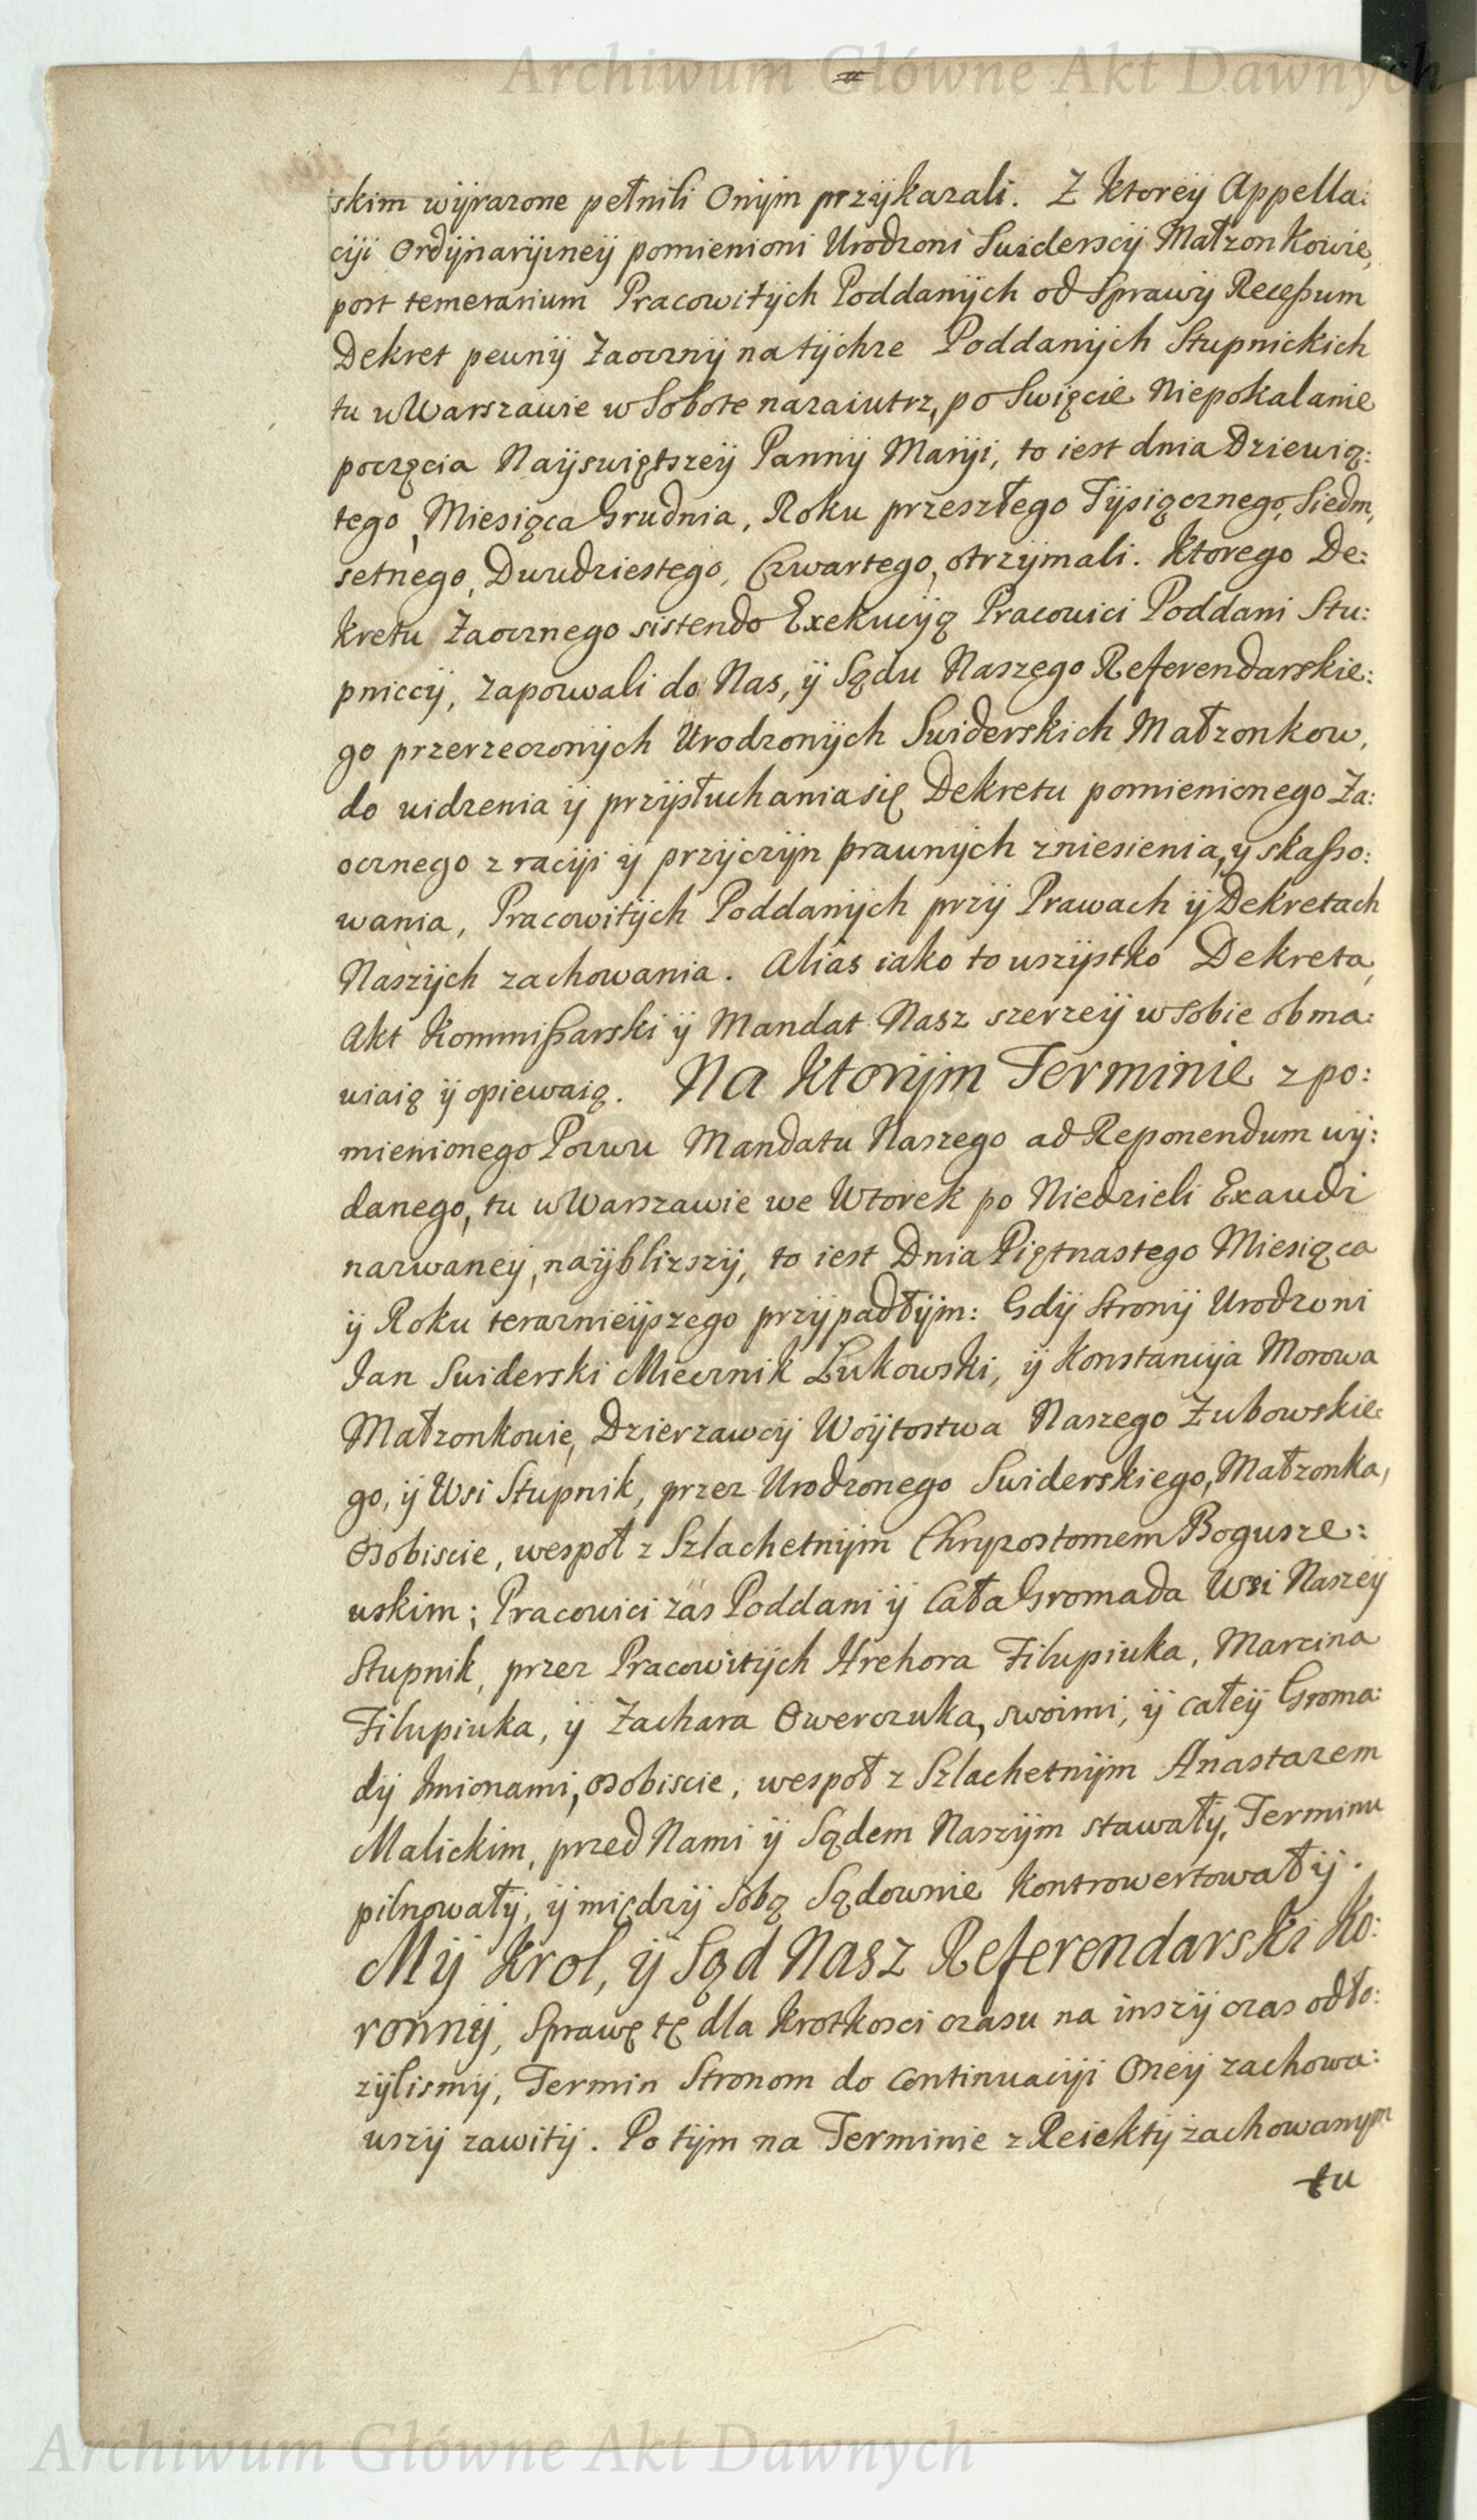 Archiwum Główne Akt Dawnych
skim wyrazone pełnili Onym przykazali. Z Ktorey Appella:
cyi Ordynaryiney pomienioni Urodzoni Swiderscy Małzonkowie,
post temerarium Pracowitych Poddanych od Sprawy Recessum
Dekret pewny Zaoczny na tychze Poddanych Stupnickich
tu w Warszawie w Sobote nazaiutrz, po Swięcie Niepokalanie
poczęcia Nayswiętszey Panny Maryi, to iest dnia Dziewią:
tego, Miesiąca Grudnia, Roku przeszłego Tysiącznego, Siedm,
setnego, Dwudziestego, Czwartego, otrzymali. Ktorego De:
kretu Zaocznego sistendo Exekucyą Pracowici Poddani Stu:
pniccy, zapozwali do Nas, y Sądu Naszego Referendarskie:
go przerzeczonych Urodzonych Swiderskich Małzonkow,
do widzenia y przysłuchania się Dekretu pomienionego Za:
ocznego z racyi y przyczyn prawnych zniesienia, y skasso:
wania, Pracowitych Poddanych przy Prawach y Dekretach
Naszych zachowania. Alias iako to wszystko Dekreta,
Akt Kommissarski y Mandat Nasz szerzey w sobie obma:
wiaią y opiewaią. Na Ktorym Terminie z po:
mienionego Pozwu Mandatu Naszego ad Reponendum wy:
danego, tu w Warszawie we Wtorek po Niedzieli Exaudi
nazwaney, nayblizszy, to iest Dnia Piętnastego Miesiąca
y Roku teraznieyszego przypadłym: Gdy Strony Urodzoni
Jan Swiderski Miecznik Łukowski, y Konstancyja Morowa
Małzonkowie, Dzierzawcy Woytostwa Naszego Zubowskie:
go, y Wsi Stupnik, przez Urodzonego Swiderskiego, Małzonka,
Osobiscie, wespoł z Szlachetnym Chryzostomem Bogusze:
wskim; Pracowici zas Poddani y Cała Gromada Wsi Naszey
Stupnik, przez Pracowitych Hrehora Filupiuka, Marcina
Filupiuka, y Zachara Owerczuka, swoimi, y całey Groma:
dy Imionami, osobiscie, wespoł z Szlachetnym Anastazem
Malickim, przed Nami y Sądem Naszym stawały, Terminu
pilnowały, y między sobą Sądownie kontrowertowały.
My Krol, y Sąd Nasz Referendarski Ko:
ronny, Sprawę tę dla krotkosci czasu na inszy czas odło:
zylismy, Termin Stronom do Continuacyi Oney zachowa:
wszy zawity. Po tym na Terminie z Reiekty zachowanym
tu
Archiwum Główne Akt Dawnych